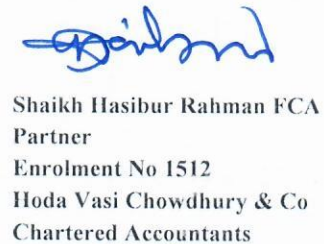 Shaikh Hasibur Rahman FCA
Partner
Enrolment No 1512
Hoda Vasi Chowdhury & Co
Chartered Accountants